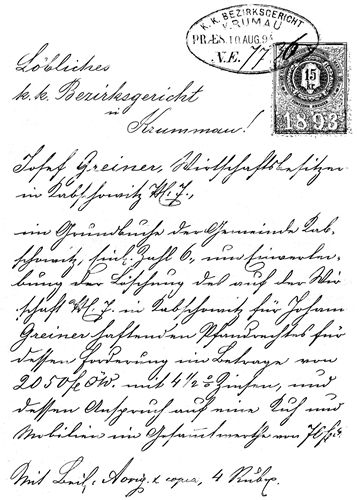 K. K. BEZIRKSGERICHT
KRUMAU
PRÆS. 10 AUG. 94
N.E. 77
15
kr
1893
Löbliches
k. k. Bezirksgericht
in
Krummau!
Josef Greiner, Wirtschaftsbesitzer
in Kabschowitz № 7,
im Grundbuche der Gemeinde Kab-
schowitz, Einl. Zahl 6, um Einverlei-
bung der Löschung des auf der Wir-
schaft № 7 in Kabschowitz für Johann
Greiner haftenden Pfandrechtes für
dessen Forderung im Betrage von
2050 f öW. mit 4 1/2 % Zinsen, und
dessen Anspruch auf eine Kuh und
Mobilien im Gesammtwerthe von 70 f
Mit Beil. 4 Rubr.